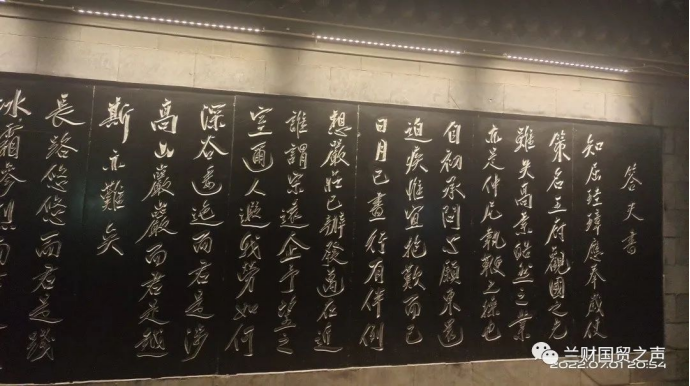 答夫書
知屈珪璋應奉歲使
策名王府觀國之光
雖失高素皓然之業
亦是仲尼執鞭之操也
自初承問心願東還
迫疾惟宜抱歎而已
日月已盡行有伴例
想嚴莊已辦發邁在近
誰謂宋遠企予望之
室邇人遐我勞如何
深谷逶迤而君是涉
高山巖巖而君是越
斯亦難矣
長路悠悠而君是踐
冰霜慘烈而
兰财国贸之声
2022.07.01 20:54